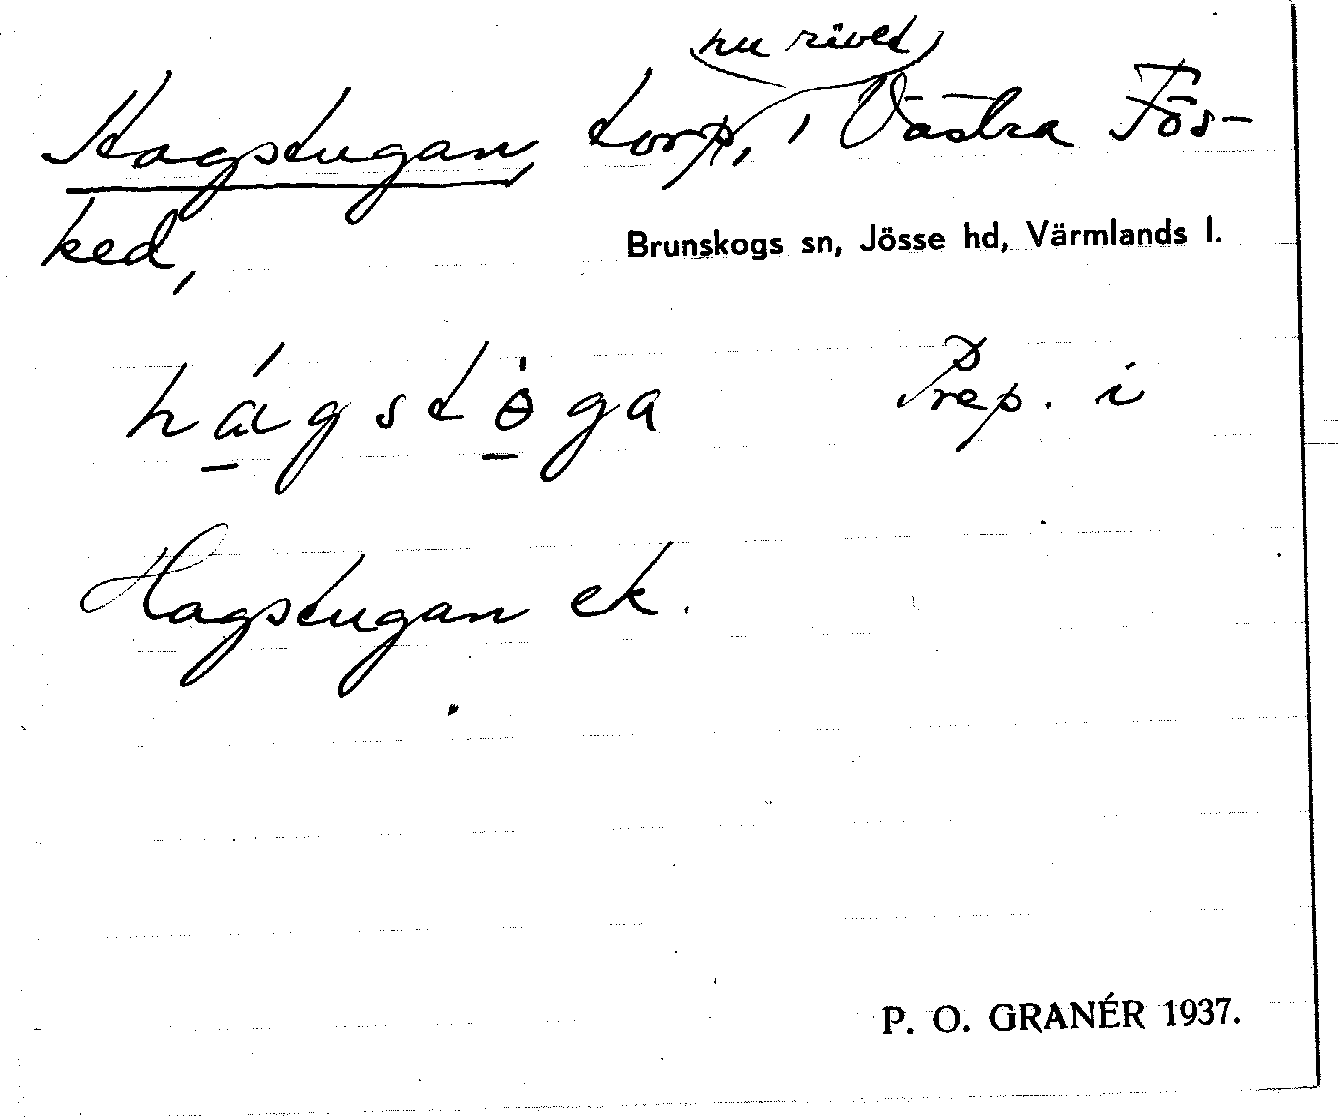 nu rivet,
Hagstugan, torp, i Västra Fös-
ked,
Brunskogs sn, Jösse hd, Värmlands l.
hágstöga Prep. i
Hagstugan ek.
P. O. GRANÉR 1937.